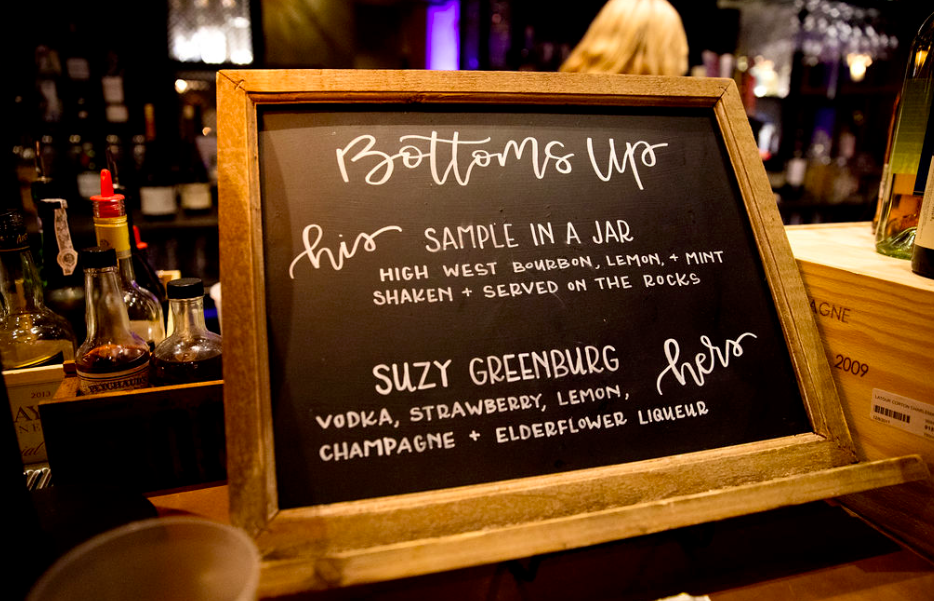 Bottoms Up
his SAMPLE IN A JAR
HIGH WEST BOURBON, LEMON, + MINT
SHAKEN + SERVED ON THE ROCKS
SUZY GREENBURG hers
VODKA, STRAWBERRY, LEMON,
CHAMPAGNE + ELDERFLOWER LIQUEUR
PEYCHAUD
2013
AGNE
2009